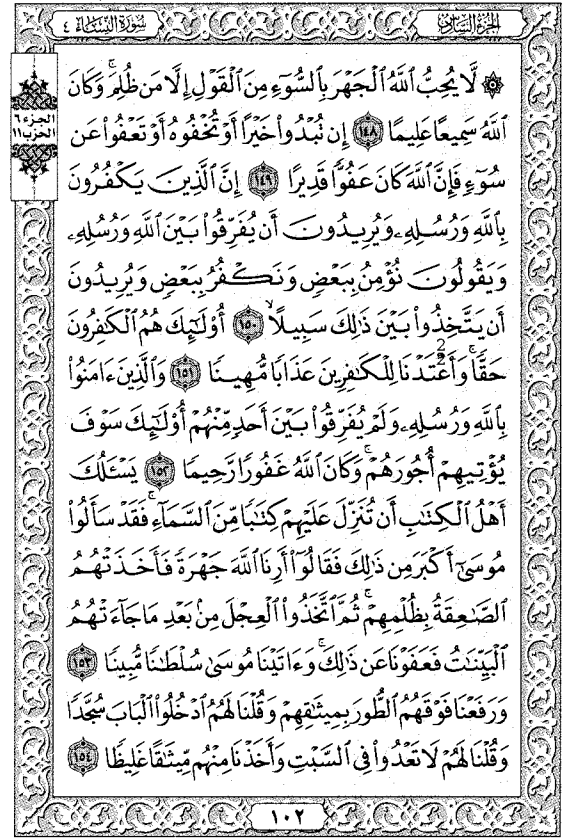 سُورَةُ النِّسَاءِ ٤
الجُزْءُ السَّادِسُ
الجزء ٦
الحزب ١١
۞ لَّا يُحِبُّ ٱللَّهُ ٱلْجَهْرَ بِٱلسُّوٓءِ مِنَ ٱلْقَوْلِ إِلَّا مَن ظُلِمَ ۚ وَكَانَ
ٱللَّهُ سَمِيعًا عَلِيمًا ١٤٨ إِن تُبْدُوا۟ خَيْرًا أَوْ تُخْفُوهُ أَوْ تَعْفُوا۟ عَن
سُوٓءٍ فَإِنَّ ٱللَّهَ كَانَ عَفُوًّا قَدِيرًا ١٤٩ إِنَّ ٱلَّذِينَ يَكْفُرُونَ
بِٱللَّهِ وَرُسُلِهِۦ وَيُرِيدُونَ أَن يُفَرِّقُوا۟ بَيْنَ ٱللَّهِ وَرُسُلِهِۦ
وَيَقُولُونَ نُؤْمِنُ بِبَعْضٍ وَنَكْفُرُ بِبَعْضٍ وَيُرِيدُونَ
أَن يَتَّخِذُوا۟ بَيْنَ ذَٰلِكَ سَبِيلًا ١٥٠ أُو۟لَـٰٓئِكَ هُمُ ٱلْكَـٰفِرُونَ
حَقًّا ۚ وَأَعْتَدْنَا لِلْكَـٰفِرِينَ عَذَابًا مُّهِينًا ١٥١ وَٱلَّذِينَ ءَامَنُوا۟
بِٱللَّهِ وَرُسُلِهِۦ وَلَمْ يُفَرِّقُوا۟ بَيْنَ أَحَدٍ مِّنْهُمْ أُو۟لَـٰٓئِكَ سَوْفَ
يُؤْتِيهِمْ أُجُورَهُمْ ۗ وَكَانَ ٱللَّهُ غَفُورًا رَّحِيمًا ١٥٢ يَسْـَٔلُكَ
أَهْلُ ٱلْكِتَـٰبِ أَن تُنَزِّلَ عَلَيْهِمْ كِتَـٰبًا مِّنَ ٱلسَّمَآءِ ۚ فَقَدْ سَأَلُوا۟
مُوسَىٰٓ أَكْبَرَ مِن ذَٰلِكَ فَقَالُوٓا۟ أَرِنَا ٱللَّهَ جَهْرَةً فَأَخَذَتْهُمُ
ٱلصَّـٰعِقَةُ بِظُلْمِهِمْ ۚ ثُمَّ ٱتَّخَذُوا۟ ٱلْعِجْلَ مِنۢ بَعْدِ مَا جَآءَتْهُمُ
ٱلْبَيِّنَـٰتُ فَعَفَوْنَا عَن ذَٰلِكَ ۚ وَءَاتَيْنَا مُوسَىٰ سُلْطَـٰنًا مُّبِينًا ١٥٣
وَرَفَعْنَا فَوْقَهُمُ ٱلطُّورَ بِمِيثَـٰقِهِمْ وَقُلْنَا لَهُمُ ٱدْخُلُوا۟ ٱلْبَابَ سُجَّدًا
وَقُلْنَا لَهُمْ لَا تَعْدُوا۟ فِى ٱلسَّبْتِ وَأَخَذْنَا مِنْهُم مِّيثَـٰقًا غَلِيظًا ١٥٤
١٠٢